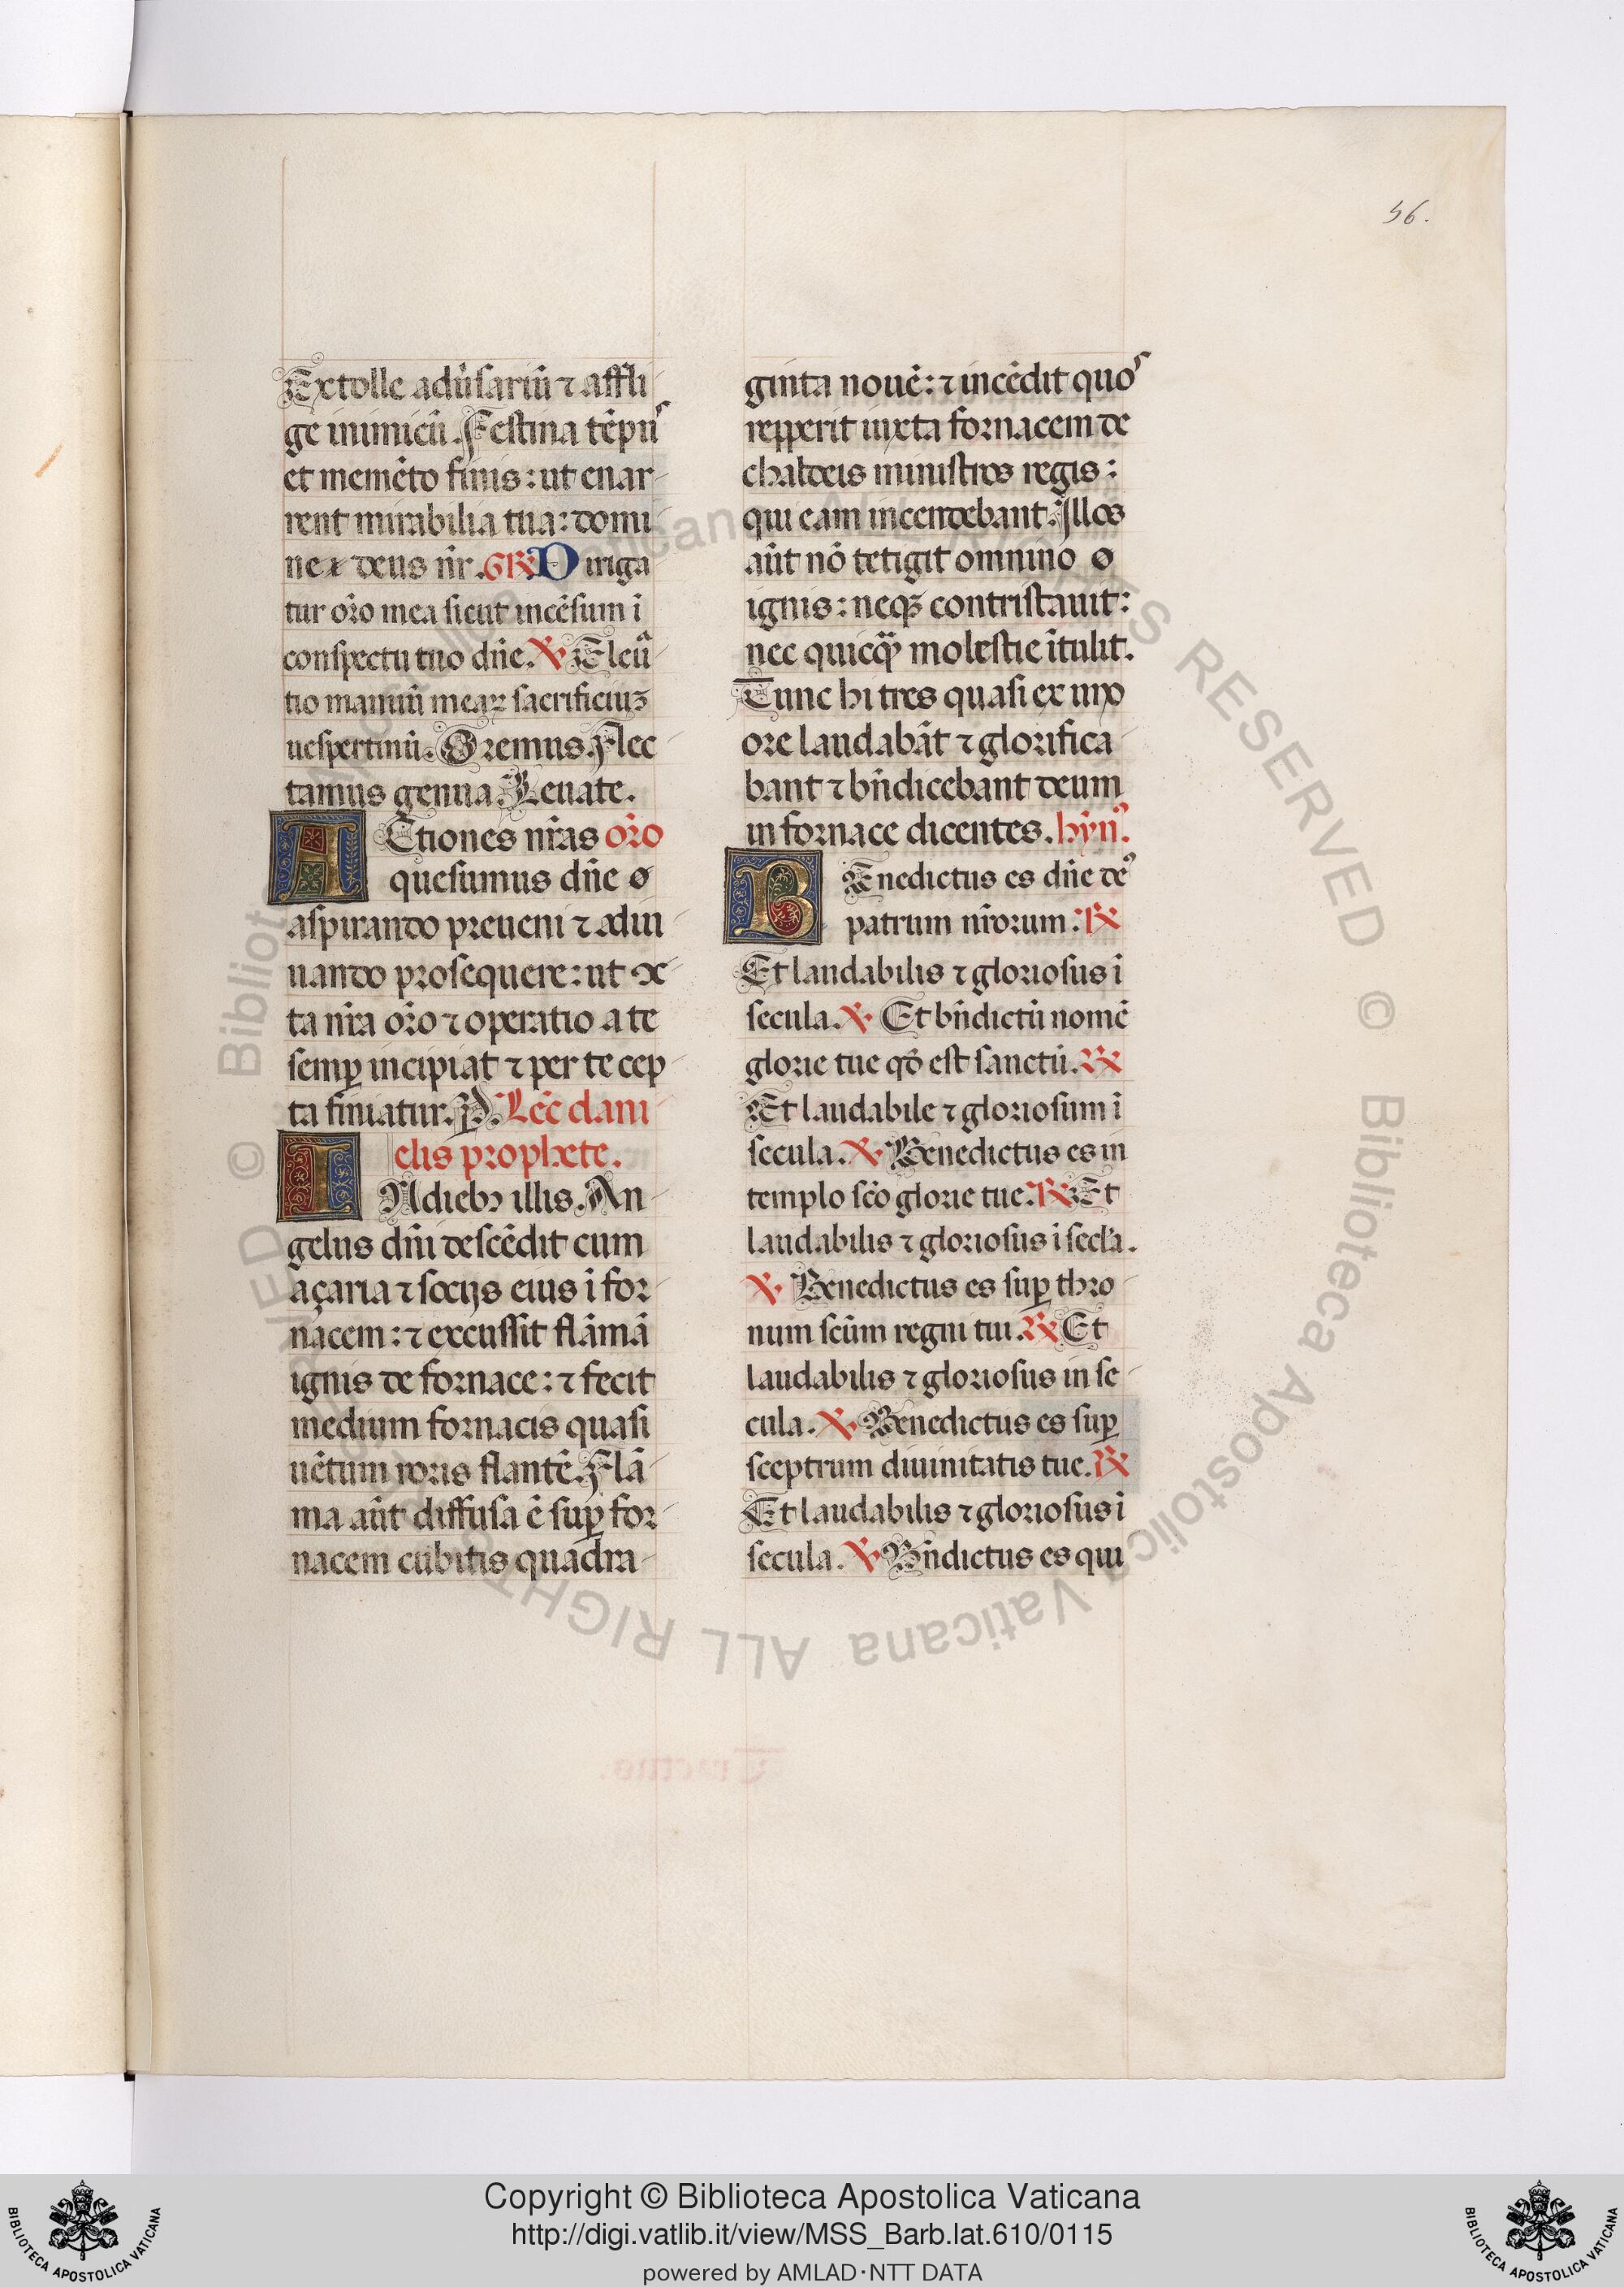 56.
Extolle adũsariũ ⁊ affli
ge inimicũ. Festina tẽpus
et memẽto finis: ut enar
rent mirabilia tua: domi
ne deus nr̃. GR̃. Diriga
tur or̃o mea sicut incẽsum ĩ
conspectu tuo dñe. ℣ Eleuã
tio manuũ meaꝝ sacrificiuꝫ
uespertinũ. Oremus. Flec
tamus genua. Leuate.
ACtiones nr̃as or̃o
quesumus dñe
aspirando preueni ⁊ adiu
uando prosequere: ut
ta nr̃a or̃o ⁊ operatio a te
semꝑ incipiat ⁊ per te cep
ta finiatur. P. Lec̃ dani
elis prophete.
IN dieb⁊ illis. An
gelus dñi descẽdit cum
açaria ⁊ socijs eius ĩ for
nacem: ⁊ excussit flãmã
ignis de fornace: ⁊ fecit
medium fornacis quasi
uẽtum roris flantẽ. Flã
ma aũt diffusa ẽ suꝑ for
nacem cubitis quadra
ginta nouẽ: ⁊ incẽdit quos
repperit iuxta fornacem de
chaldeis ministros regis:
qui eam incendebant. Illos
aũt nõ tetigit omnino
ignis: neqꝫ contristauit:
nec quicq̃ molestie ĩtulit.
Tunc hi tres quasi ex uno
ore laudabãt ⁊ glorifica
bant ⁊ bñdicebant deum
in fornace dicentes. hỹnꝰ.
BEnedictus es dñe deꝰ
patrum nr̃orum. ℟
Et laudabilis ⁊ gloriosus ĩ
secula. ℣ Et bñdictũ nomẽ
glorie tue qõ est sanctũ. ℟
Et laudabile ⁊ gloriosum ĩ
secula. ℣ Benedictus es in
templo sc̃o glorie tue. ℟ Et
laudabilis ⁊ gloriosus ĩ secl̃a.
℣ Benedictus es suꝑ thro
num sc̃um regni tui. ℟ Et
laudabilis ⁊ gloriosus in se
cula. ℣ Benedictus es suꝑ
sceptrum diuinitatis tue. ℟
Et laudabilis ⁊ gloriosus ĩ
secula. ℣ Bñdictus es qui
Copyright © Biblioteca Apostolica Vaticana
http://digi.vatlib.it/view/MSS_Barb.lat.610/0115
powered by AMLAD·NTT DATA
BIBLIOTECA APOSTOLICA VATICANA
BIBLIOTECA APOSTOLICA VATICANA